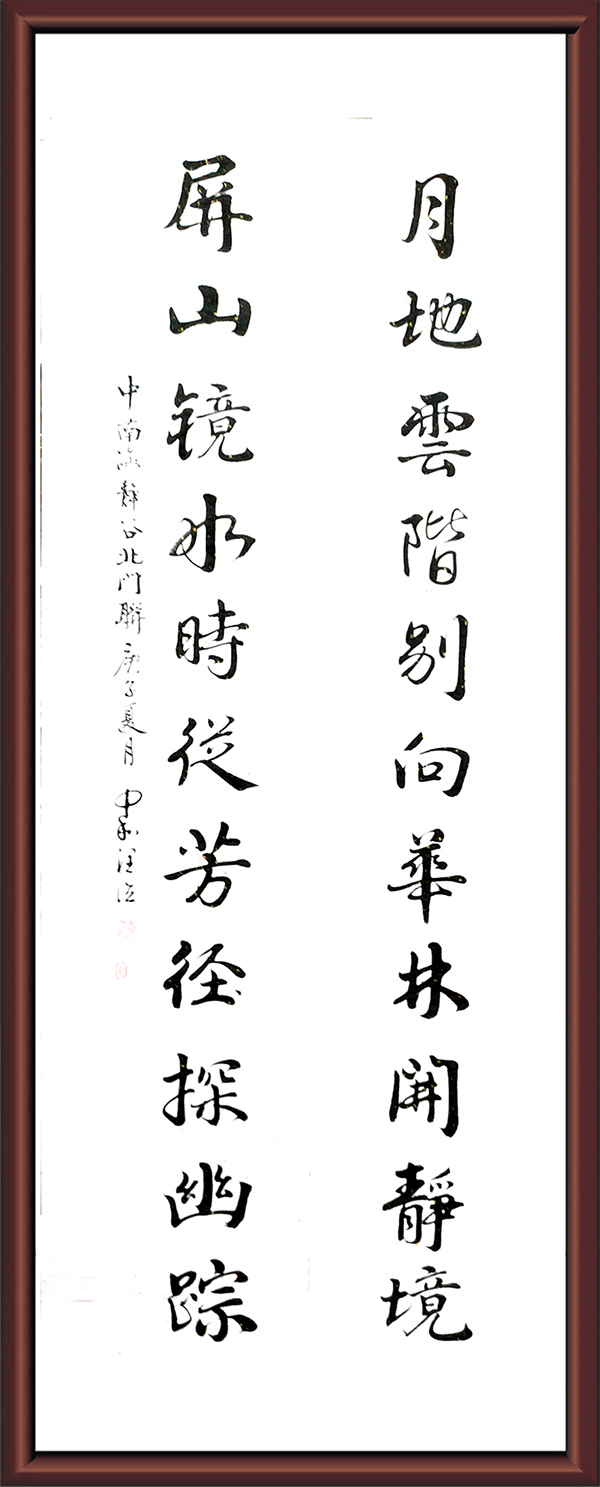 月地雲階别向華林開靜境
屏山镜水時從芳径探幽踪
中南海静谷北门联庚子夏月